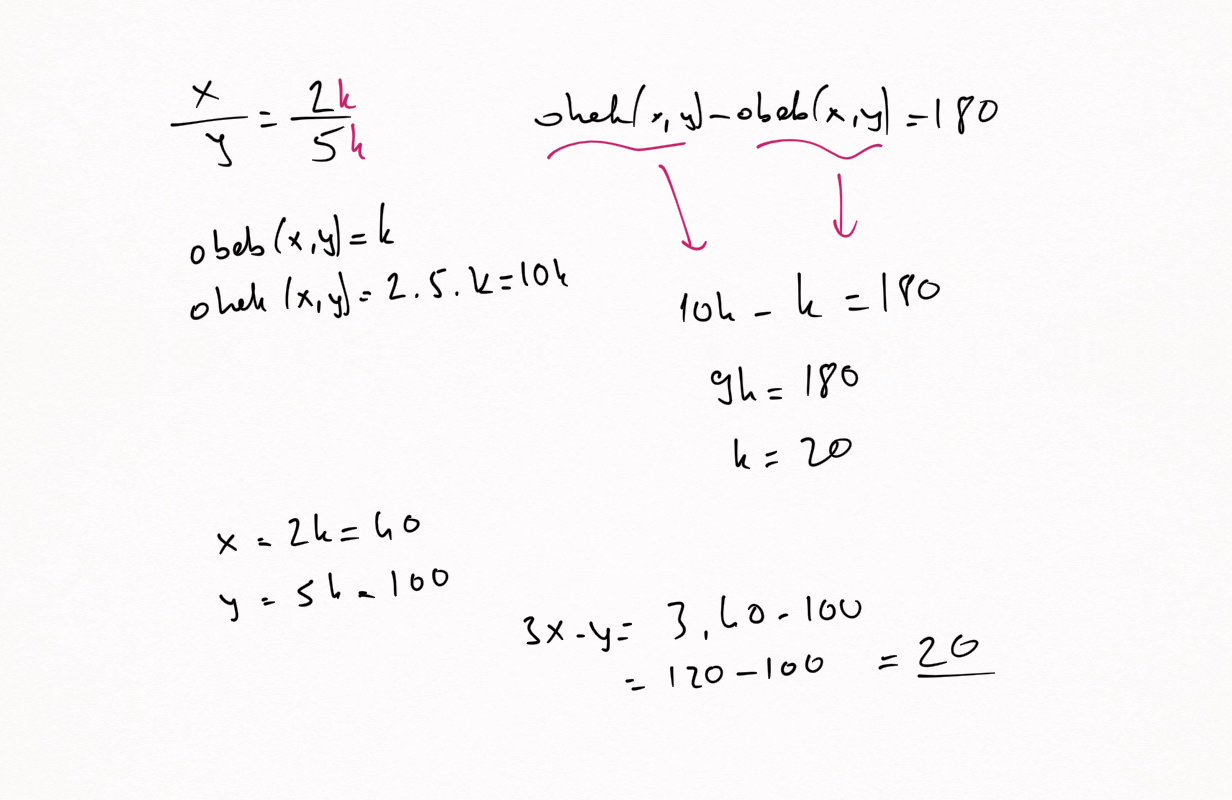 x/y = 2k/5k
okek(x,y) - obeb(x,y) = 180
obeb(x,y) = k
okek(x,y) = 2.5.k = 10k
10k - k = 180
9k = 180
k = 20
x = 2k = 40
y = 5k = 100
3x - y = 3.40 - 100
= 120 - 100 = 20